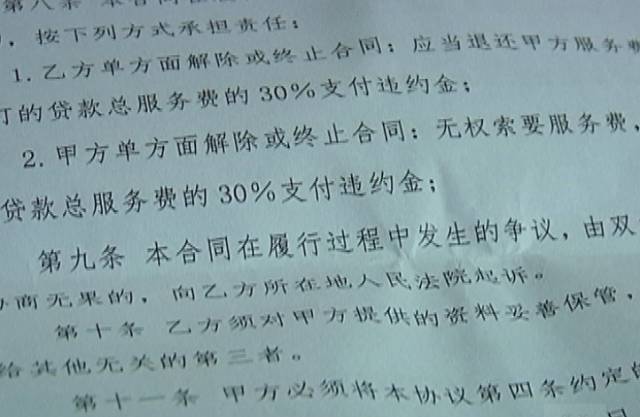 第八条 本合同
，按下列方式承担责任：
1. 乙方单方面解除或终止合同：应当退还甲方服务费
订的贷款总服务费的 30%支付违约金；
2. 甲方单方面解除或终止合同：无权索要服务费，
贷款总服务费的 30%支付违约金；
第九条 本合同在履行过程中发生的争议，由双
协商无果的，向乙方所在地人民法院起诉。
第十条 乙方须对甲方提供的资料妥善保管，
给其他无关的第三者。
第十一条 甲方必须将本协议第四条约定的